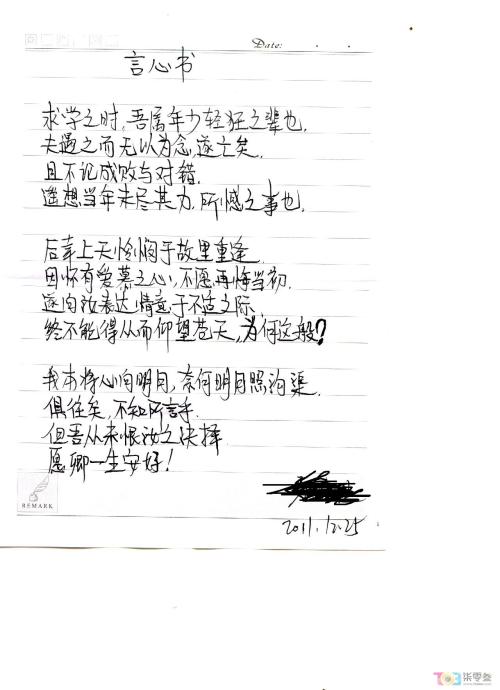 Date:
言心书
求学之时,吾属年少轻狂之辈也,
夫遇之而无以为念,遂亡矣.
且不记成败与对错.
遥想当年未尽其力,所憾之事也.
后幸上天怜悯于故里重逢
因怀有爱慕之心,不愿再悔当初.
遂向汝表达情意于不适之际.
终不能得从而仰望苍天,为何这般?
我本将心向明月,奈何明月照沟渠.
俱往矣,不知所言乎.
但吾从未恨汝之决择
愿卿一生安好!
REMARK
2011.12.25
柒零叁